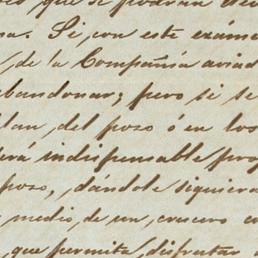 que se podrán
na. Si, con este exáme
, de la Compañía aviad
abandonar; pero si se
plan, del pozo ó en los
erá indispensable pro
pozo, dándole siquiera
medio, de un, crucero en
, que permita, disfrutar